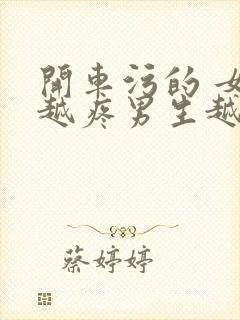 開車污的 女
越疼男生越
蔡婷婷